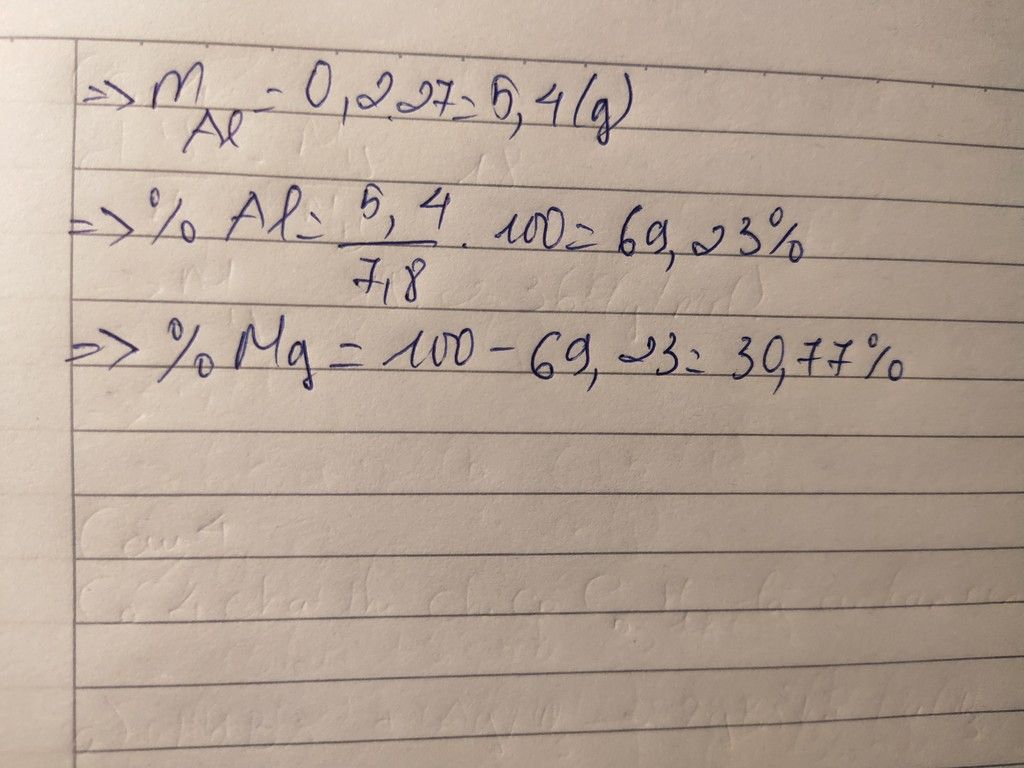 => m Al = 0,2.27 = 5,4 (g)
=> % Al = 5,4/7,8 . 100 = 69,23%
=> % Mg = 100 - 69,23 = 30,77%